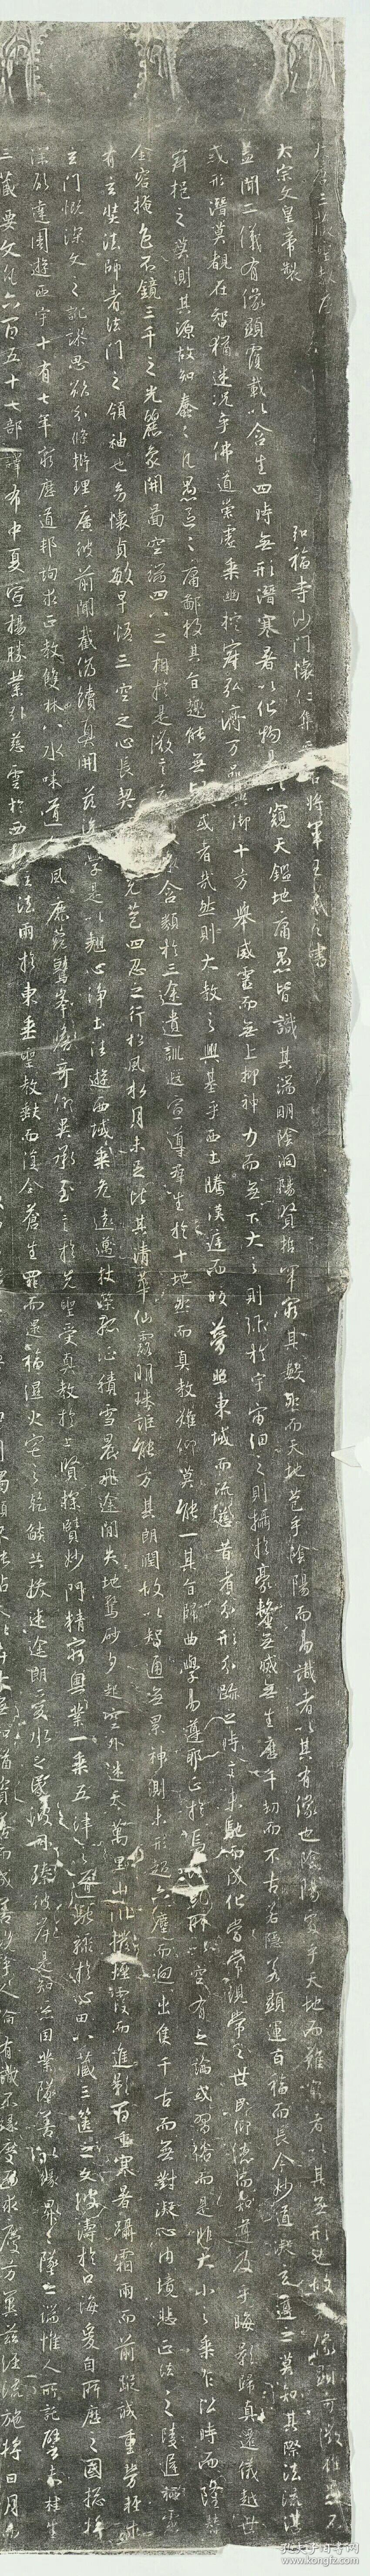 大唐三藏聖教序
太宗文皇帝製
弘福寺沙門懷仁集晉右將軍王羲之書
蓋聞二儀有像顯覆載以含生四時無形潛寒暑以化物是以窺天鑑地庸愚皆識其端明陰洞陽賢哲罕窮其數然而天地苞乎陰陽而易識者以其有像也陰陽處乎天地而難窮者以其無形也故像顯可徵雖愚不
惑形潛莫覩在智猶迷況乎佛道崇虛乘幽控寂弘濟萬品典御十方舉威靈而無上抑神力而無下大之則彌於宇宙細之則攝於豪釐無滅無生歷千劫而不古若隱若顯運百福而長今妙道凝玄遵之莫知其際法流湛
寂挹之莫測其源故知蠢蠢凡愚區區庸鄙投其旨趣能無或者哉然則大教之興基乎西土騰漢庭而皎夢照東域而流慈昔者分形分跡之時言未馳而成化當常現常之世民仰德而知遵及乎晦影歸真遷儀越世
金容掩色不鏡三千之光麗象開圖空端四八之相於是微言含類於三途遺訓遐宣導群生於十地然而真教難仰莫能一其旨歸曲學易遵耶正於焉紛糺所以空有之論或習俗而是非大小之乘乍沿時而隆替
有玄奘法師者法門之領袖也幼懷貞敏早悟三空之心長契先苞四忍之行松風水月未足比其清華仙露明珠詎能方其朗潤故以智通無累神測未形超六塵而迥出隻千古而無對凝心內境悲正法之陵遲栖慮
玄門慨深文之訛謬思欲分條析理廣彼前聞截偽續真開茲後學是以翹心淨土往遊西域乘危遠邁杖策孤征積雪晨飛途閒失地驚砂夕起空外迷天萬里山川撥煙霞而進影百重寒暑躡霜雨而前蹤誠重勞輕求
深願達周遊西宇十有七年窮歷道邦詢求正教雙林八水味道風鹿菀鷲峯瞻奇仰異承至言於先聖受真教於上賢探賾妙門精窮奧業一乘五律之道馳驟於心田八藏三篋之文波濤於口海爰自所歷之國總將
三藏要文凡六百五十七部譯布中夏宣揚勝業引慈雲於西注法雨於東垂聖教缺而復全蒼生罪而還福濕火宅之乾焰共拔迷途朗愛水之昏波同臻彼岸是知惡因業墜善以緣昇昇墜之端惟人所託譬夫桂生